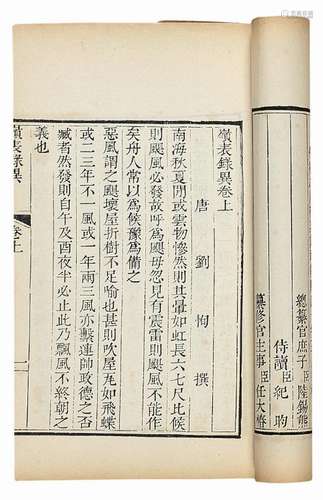 總纂官庶子臣陸錫熊
侍讀臣紀昀
纂修官主事臣任大椿
嶺表錄異卷上
唐 劉恂 撰
南海秋夏閒或雲物慘然則其暈如虹長六七尺比候
則颶風必發故呼為颶母忽見有震雷則颶風不能作
矣舟人常以為候豫為備之
惡風謂之颶壞屋折樹不足喻也甚則吹屋瓦如飛蝶
或二三年不一風或一年兩三風亦繫連帥政德之否
臧者然發則自午及酉夜半必止此乃飄風不終朝之
義也
嶺表錄異 卷上 一